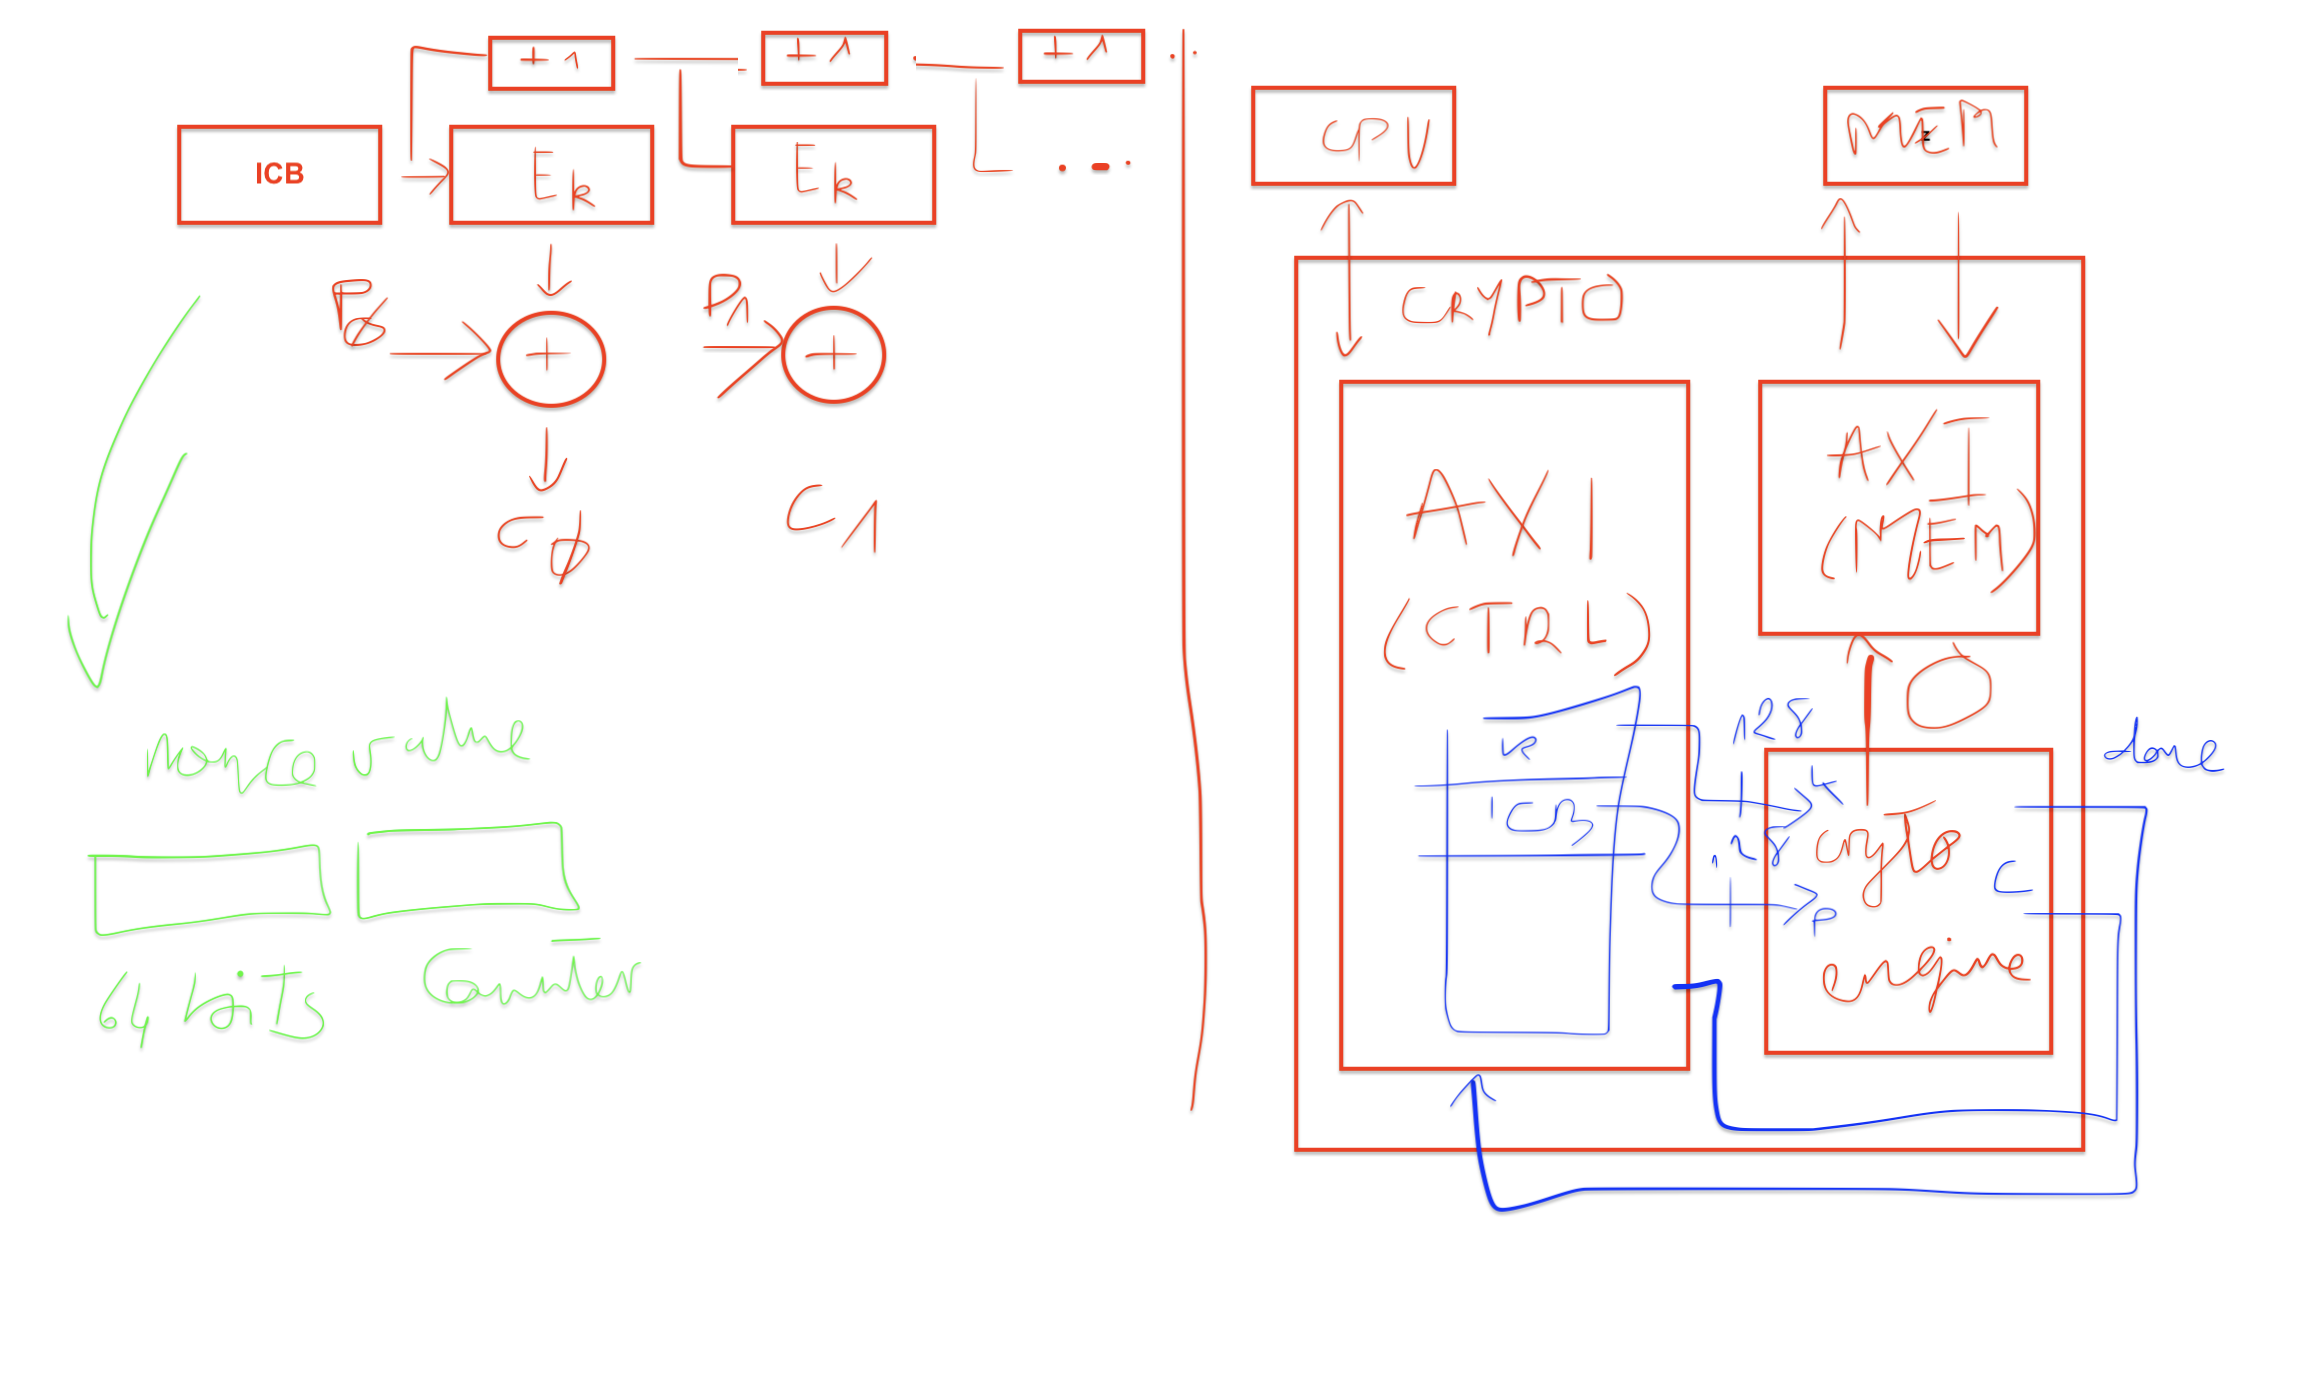 + 1
+ 1
+ 1
ICB
Ek
Ek
P0
P1
+
+
C0
C1
nonce value
64 bits
Counter
CPU
MEM
z
CRYPTO
AXI
(CTRL)
AXI
(MEM)
K
ICB
128
128
K
P
crypto
engine
C
done